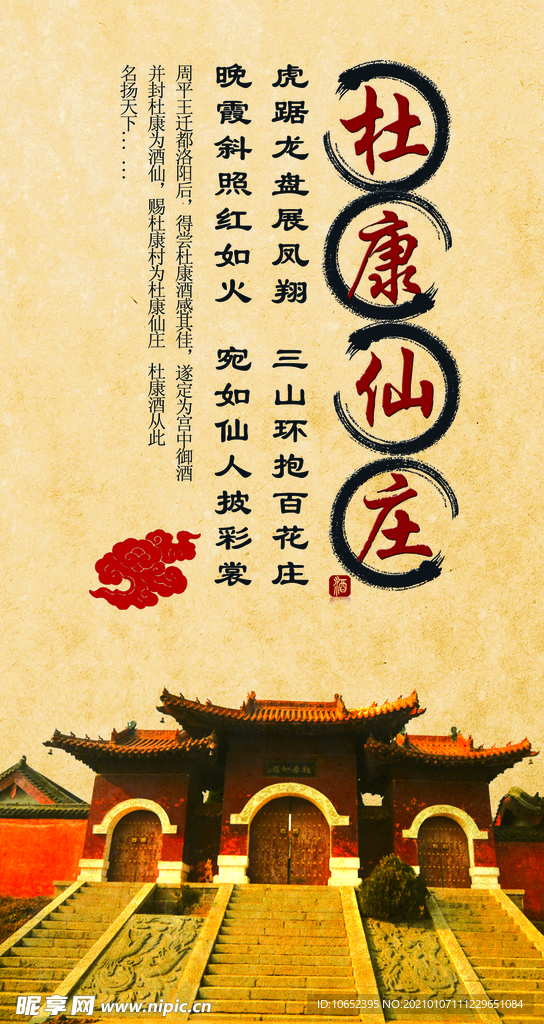 杜康仙庄
酒
虎踞龙盘展凤翔 三山环抱百花庄
晚霞斜照红如火 宛如仙人披彩裳
周平王迁都洛阳后，得尝杜康酒感其佳，遂定为宫中御酒
并封杜康为酒仙，赐杜康村为杜康仙庄 杜康酒从此
名扬天下……
昵享网 www.nipic.cn
ID:10652395 NO:20210107111229651084